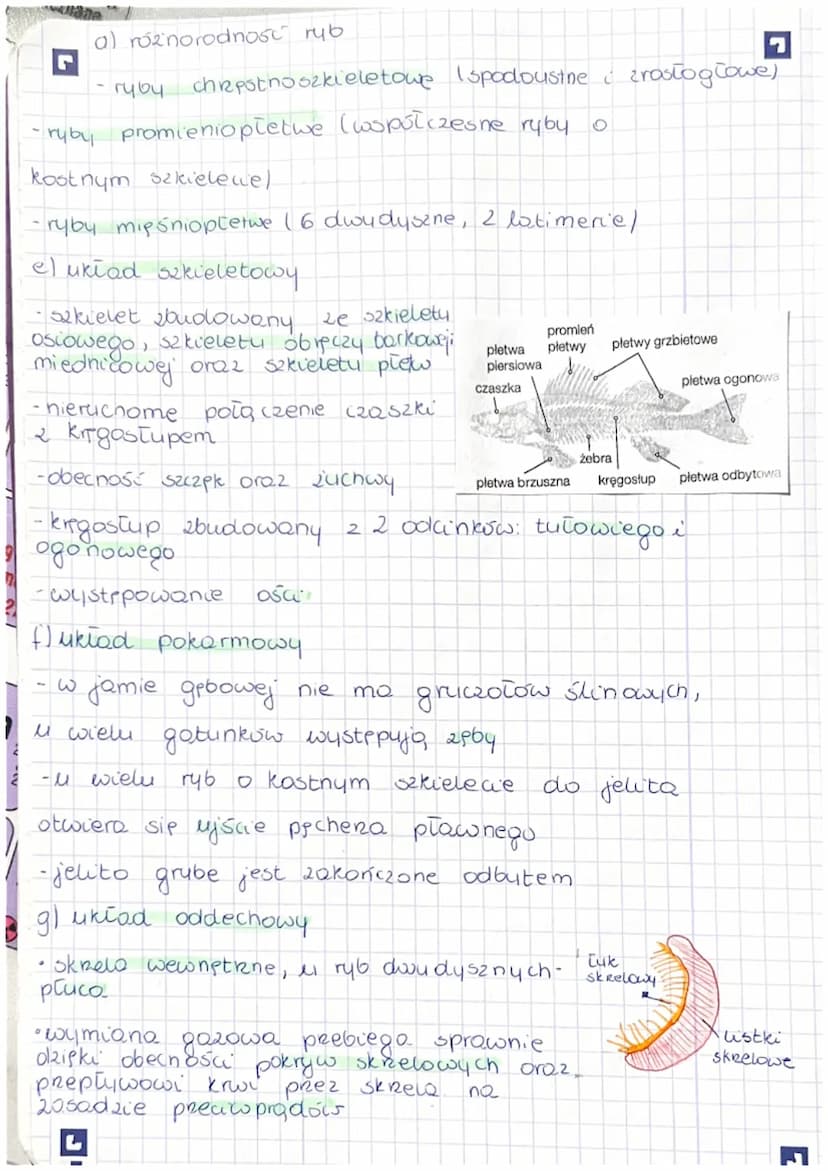 a) różnorodność ryb
- ryby chrzęstnoszkieletowe (spodouste i zrosłogłowe)
- ryby promieniopłetwe (współczesne ryby o
kostnym szkielecie)
- ryby mięśniopłetwe (6 dwudyszne, 2 latimerie)
e) układ szkieletowy
- szkielet zbudowany ze szkieletu
osiowego, szkieletu obręczy barkowej i
miednicowej oraz szkieletu płetw
- nieruchome połączenie czaszki
z kręgosłupem
- obecność szczęk oraz żuchwy
promień
płetwy
płetwy grzbietowe
płetwa
piersiowa
płetwa ogonowa
czaszka
żebra
płetwa brzuszna
kręgosłup
płetwa odbytowa
- kręgosłup zbudowany z 2 odcinków: tułowiego i
ogonowego
- występowanie ości
f) układ pokarmowy
- w jamie gębowej nie ma gruczołów ślinowych,
u wielu gatunków występują zęby
- u wielu ryb o kostnym szkielecie do jelita
otwiera się ujście pęcherza pławnego
- jelito grube jest zakończone odbytem
g) układ oddechowy
• skrzela wewnętrzne, u ryb dwudysznych -
płuca
łuk
skrzelowy
listki
skrzelowe
• wymiana gazowa przebiega sprawnie
dzięki obecności pokryw skrzelowych oraz
przepływowi krwi przez skrzela na
zasadzie przeciwprądów